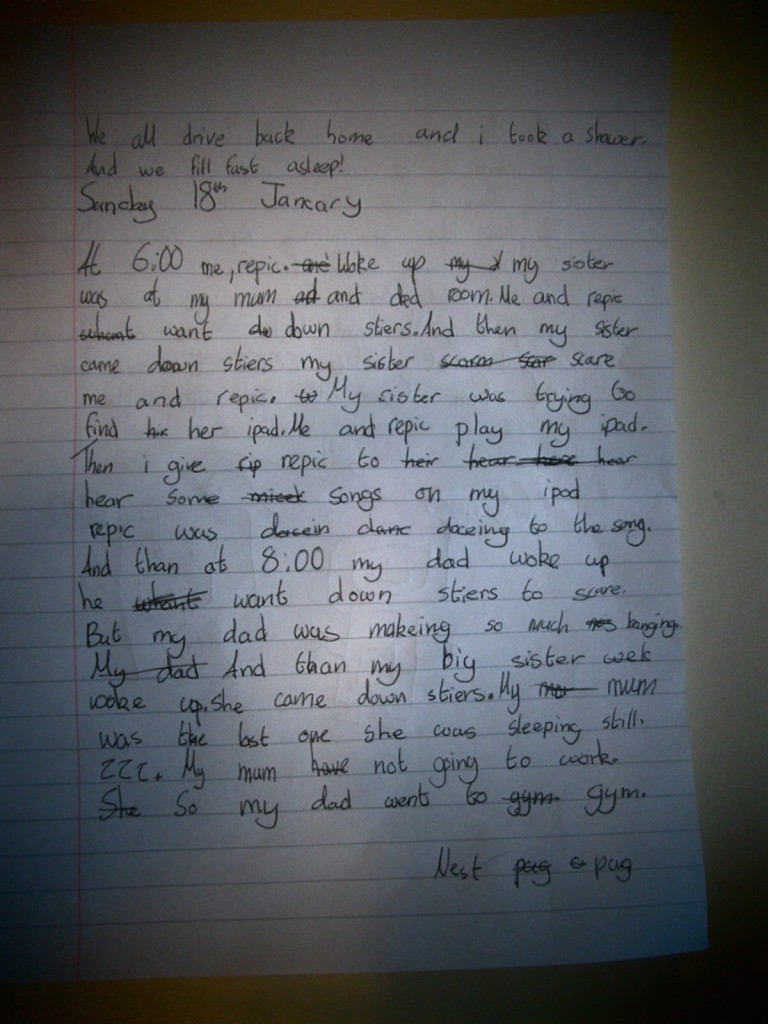 We all drive back home and i took a shower.
And we fill fast asleep!
Sunday 18th January
At 6:00 me, repic. Woke up my sister
was at my mum and ded room. Me and repic
want down stiers. And then my sister
came down stiers my sister scare
me and repic. My sister was trying to
find her ipad. Me and repic play my ipad.
Then i give repic to
hear some songs on my ipod
repic was daceing to the song.
And than at 8:00 my dad woke up
he want down stiers to scare.
But my dad was makeing so much banging
And than my big sister wek
woke up. She came down stiers. My mum
was the last one she was sleeping still.
ZZZ. My mum not going to work.
So my dad went to gym.
Nest pag